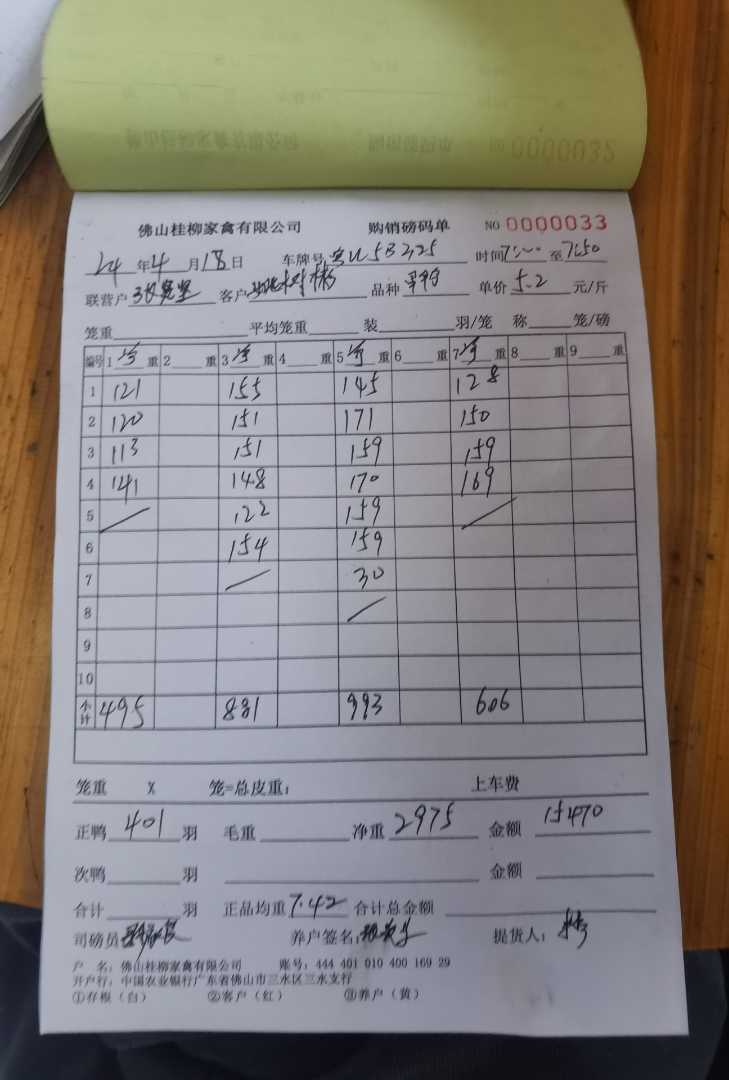 佛山桂柳家禽有限公司 购销磅码单 NO 0000033
24年4月18日 车牌号 5B225 时间7:00至7:50
联营户 客户 树彬 品种 单价5.2元/斤
笼重 平均笼重 装 羽/笼 称 笼/磅
编号 1 净重 2 重 3 净重 4 重 5 净重 6 重 7 净重 8 重 9 重
1 121 155 145 128
2 120 151 171 150
3 113 151 159 159
4 141 148 170 169
5 / 122 159 /
6 154 159
7 / 30
8 /
9
10
小计 495 881 993 606
笼重 X 笼=总皮重: 上车费
正鸭 401 羽 毛重 净重 2975 金额 15470
次鸭 羽 金额
合计 羽 正品均重 7.42 合计总金额
司磅员: 养户签名: 提货人:
户 名: 佛山桂柳家禽有限公司 账号: 444 401 010 400 169 29
开户行: 中国农业银行广东省佛山市三水区三水支行
①存根（白） ②客户（红） ③养户（黄）